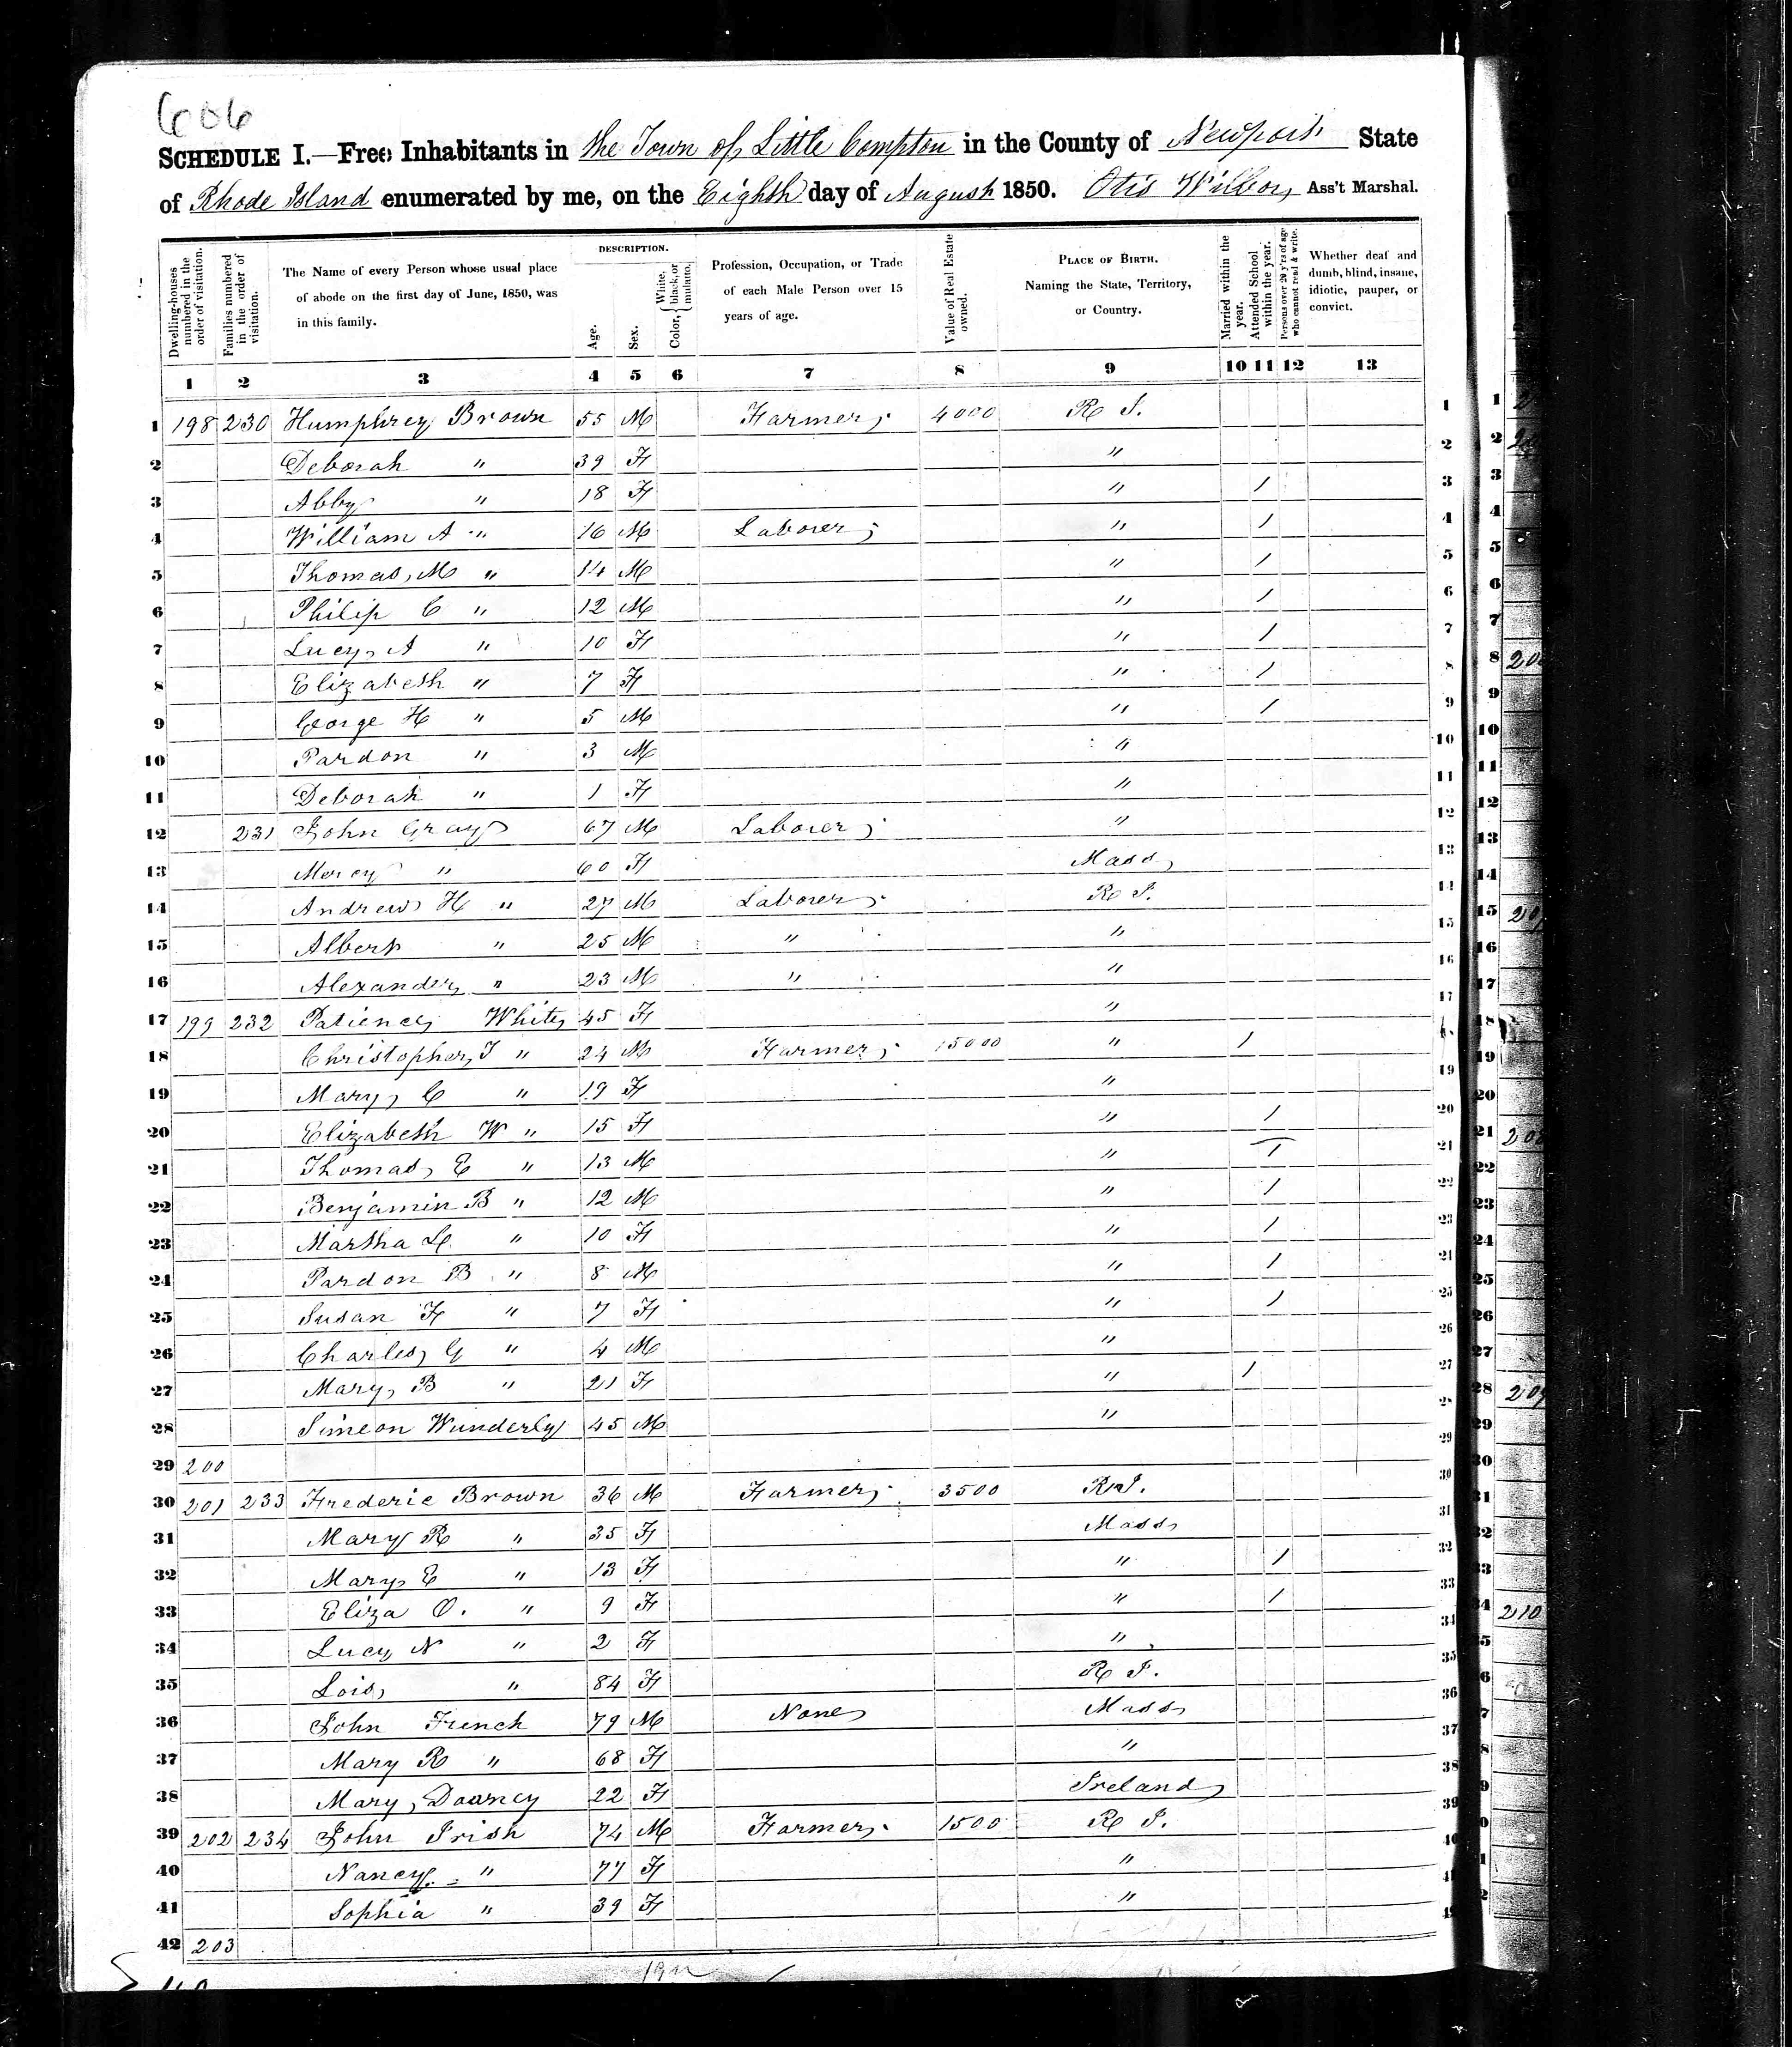 606
SCHEDULE I.—Free Inhabitants in the Town of Little Compton in the County of Newport State
of Rhode Island enumerated by me, on the Eighth day of August 1850. Otis Wilbor, Ass't Marshal.
Dwelling-houses numbered in the order of visitation.
Families numbered in the order of visitation.
The Name of every Person whose usual place of abode on the first day of June, 1850, was in this family.
DESCRIPTION.
Age.
Sex.
Color, { White, black, or mulatto.
Profession, Occupation, or Trade of each Male Person over 15 years of age.
Value of Real Estate owned.
PLACE OF BIRTH. Naming the State, Territory, or Country.
Married within the year.
Attended School within the year.
Persons over 20 y'rs of age who cannot read & write.
Whether deaf and dumb, blind, insane, idiotic, pauper, or convict.
1 2 3 4 5 6 7 8 9 10 11 12 13
1 198 230 Humphrey Brown 55 M Farmer 4000 R I. 1
2 Deborah " 39 F " 2
3 Abby " 18 F " 1 3
4 William A " 16 M Laborer " 1 4
5 Thomas M " 14 M " 1 5
6 Philip C " 12 M " 1 6
7 Lucy A " 10 F " 1 7
8 Elizabeth " 7 F " 1 8
9 George H " 5 M " 1 9
10 Pardon " 3 M " 10
11 Deborah " 1 F " 11
12 231 John Gray 67 M Laborer " 12
13 Mercy " 60 F Mass 13
14 Andrew H " 27 M Laborer R I. 14
15 Albert " 25 M " " 15
16 Alexander " 23 M " " 16
17 199 232 Patience White 45 F " 17
18 Christopher T " 24 M Farmer 15000 " 1 18
19 Mary C " 19 F " 19
20 Elizabeth W " 15 F " 1 20
21 Thomas E " 13 M " 1 21
22 Benjamin B " 12 M " 1 22
23 Martha L " 10 F " 1 23
24 Pardon B " 8 M " 1 24
25 Susan F " 7 F " 1 25
26 Charles G " 4 M " 26
27 Mary B " 21 F " 1 27
28 Simeon Wunderly 45 M " 28
29 200 29
30 201 233 Frederic Brown 36 M Farmer 3500 R I. 30
31 Mary R " 35 F Mass 31
32 Mary E " 13 F " 1 32
33 Eliza O. " 9 F " 1 33
34 Lucy N " 2 F " 34
35 Lois " 84 F R I. 35
36 John French 79 M None Mass 36
37 Mary R " 68 F " 37
38 Mary 22 F Ireland 38
39 202 234 John Irish 74 M Farmer 1500 R I. 39
40 Nancy " 77 F " 40
41 Sophia " 39 F " 41
42 203